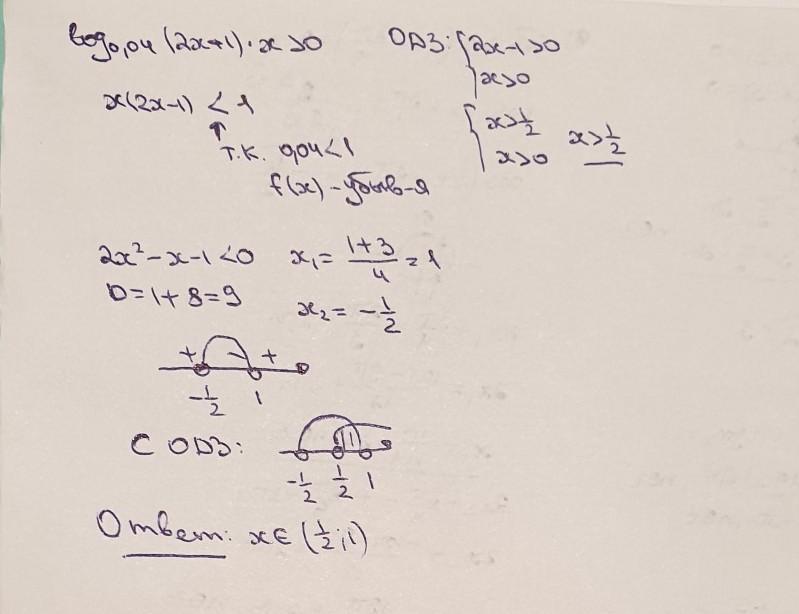 log₀,₀₄(2x+1)·x>0 ОДЗ: { 2x-1>0
x>0
x(2x-1) < 1
{ x>1/2
x>0 x>1/2
↑ т.к. 0,04<1
f(x) - убыв-я
2x²-x-1<0 x₁= (1+3)/4 = 1
D=1+8=9 x₂= -1/2
+ - +
-1/2 1
С ОДЗ:
-1/2 1/2 1
Ответ: x∈(1/2;1)